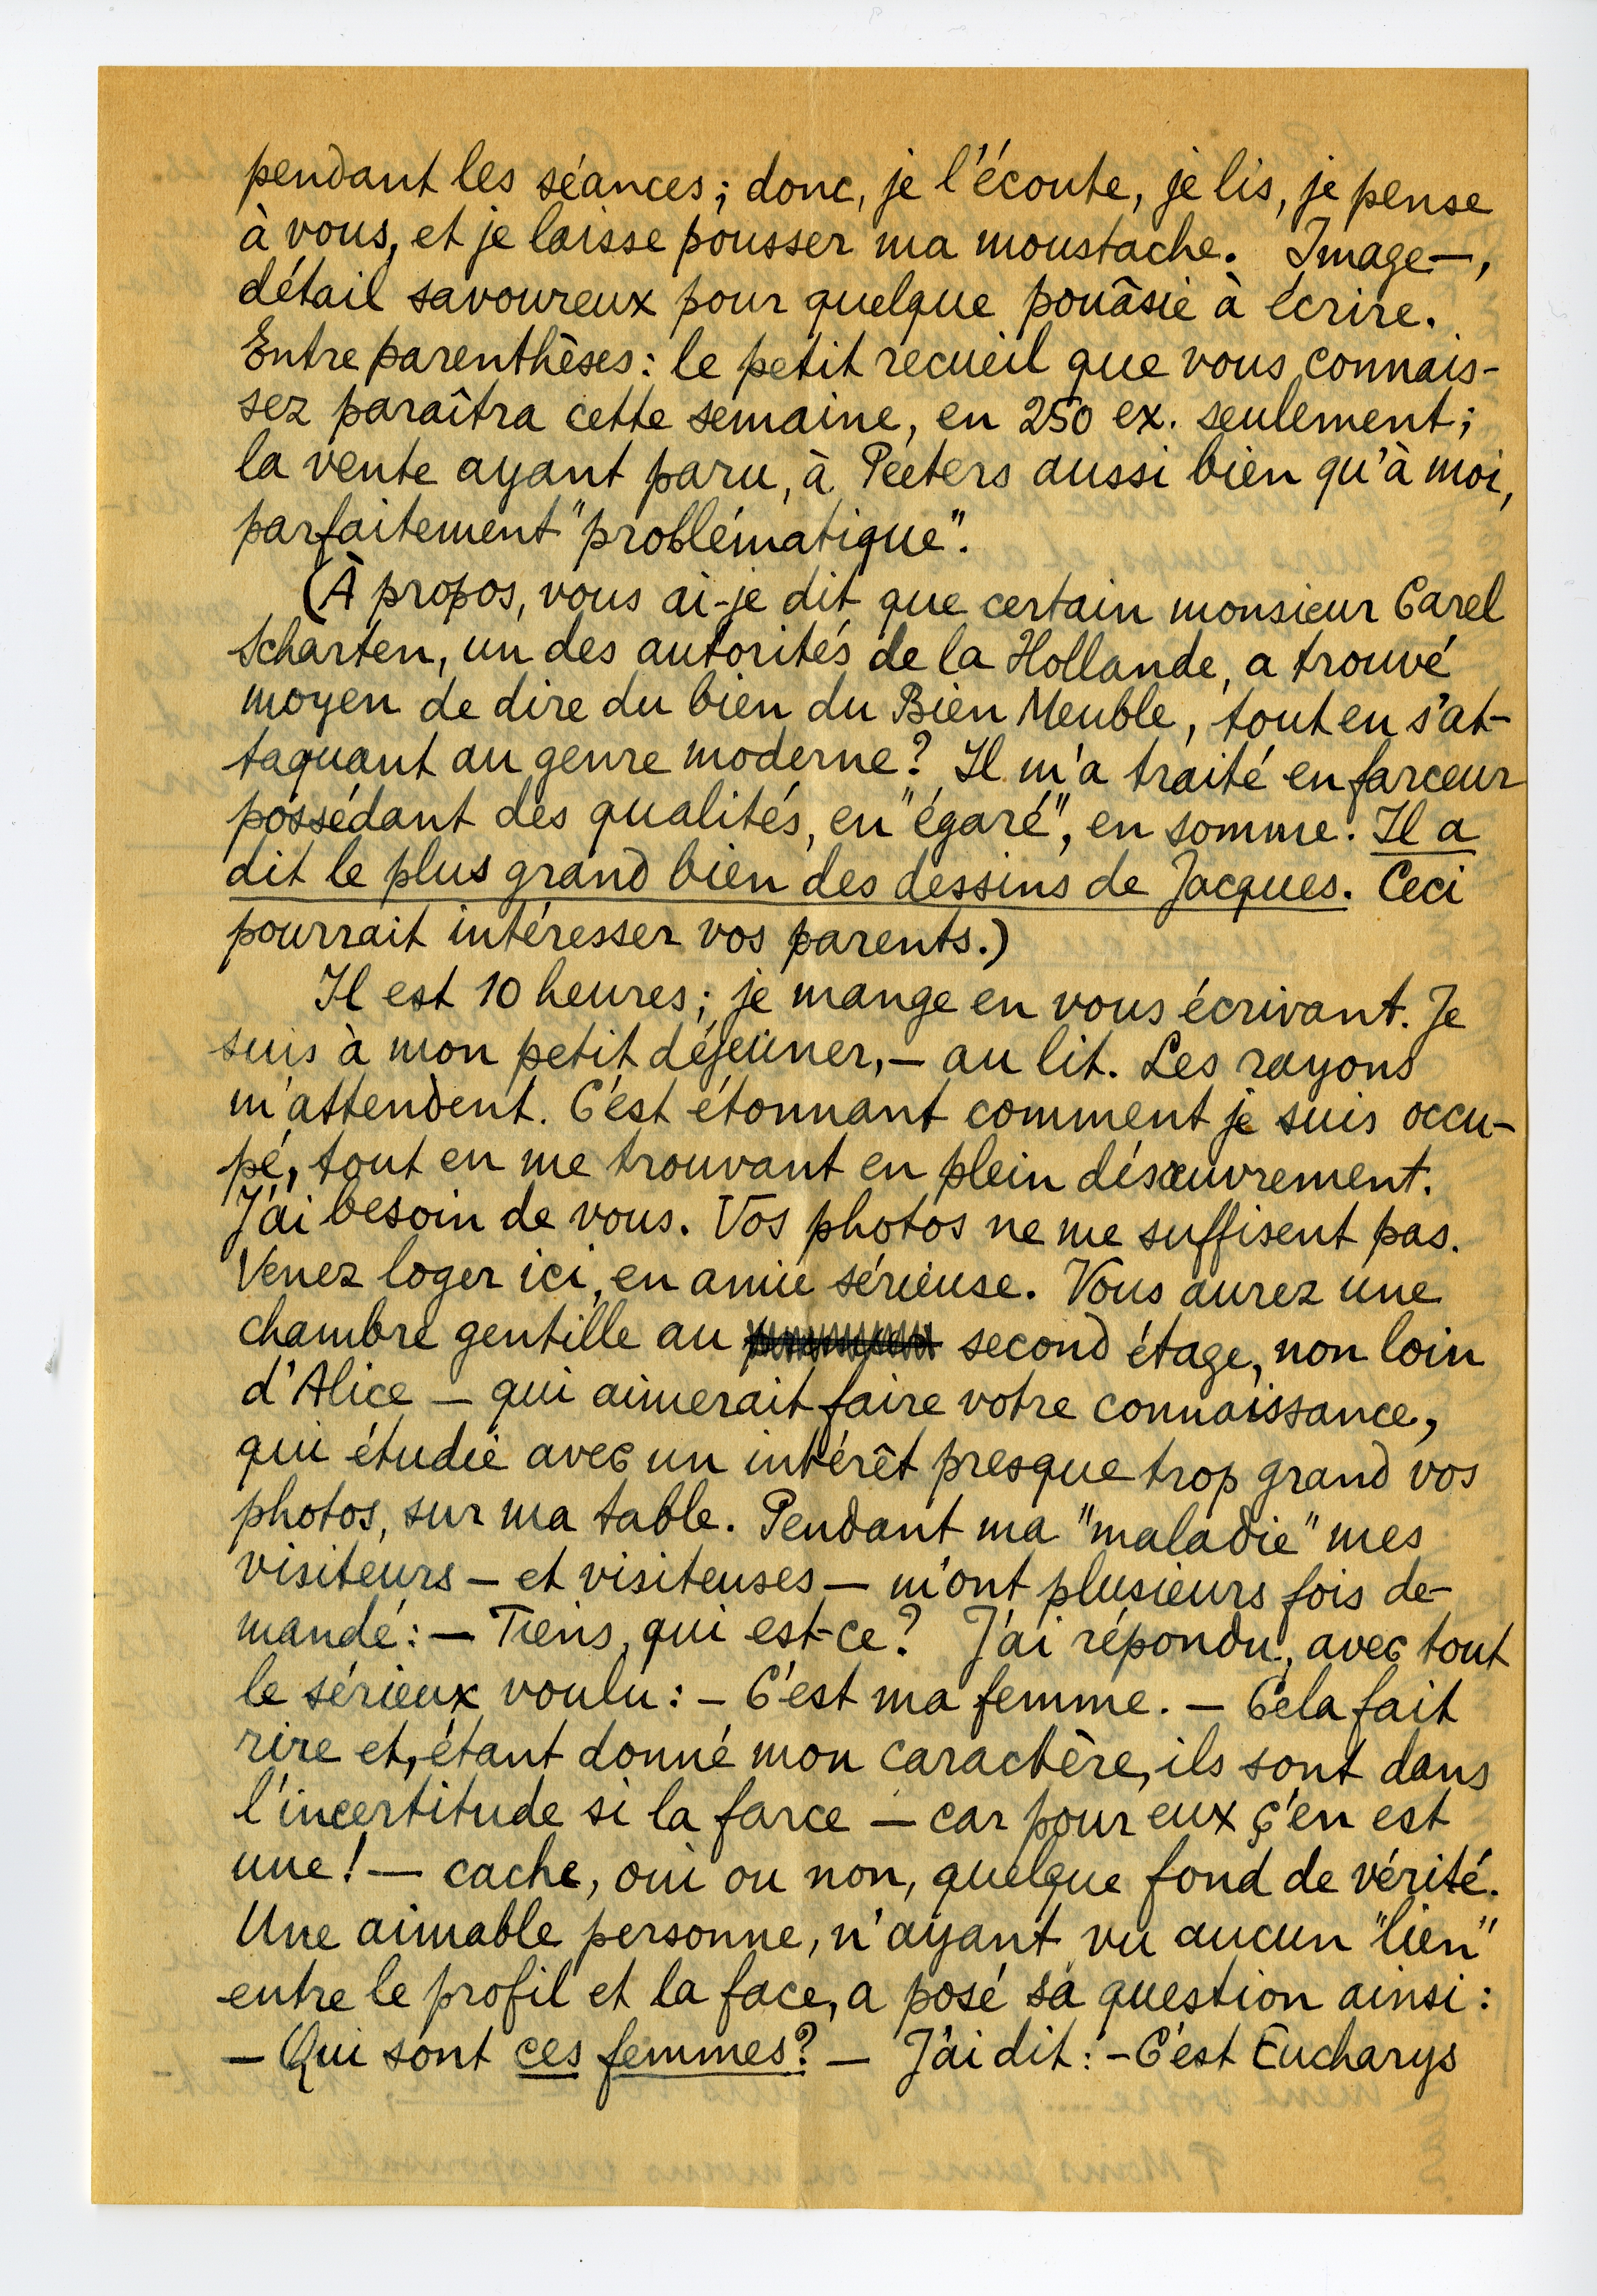 pendant les séances; donc, je l'écoute, je lis, je pense
à vous, et je laisse pousser ma moustache. Image—,
détail savoureux pour quelque pouâsie à écrire.
Entre parenthèses: le petit recueil que vous connais-
sez paraîtra cette semaine, en 250 ex. seulement;
la vente ayant paru, à Peeters aussi bien qu'à moi,
parfaitement "problématique".
(À propos, vous ai-je dit que certain monsieur Carel
Scharten, un des autorités de la Hollande, a trouvé
moyen de dire du bien du Bien Meuble, tout en s'at-
taquant au genre moderne? Il m'a traité en farceur
possédant des qualités, en "égaré", en somme. Il a
dit le plus grand bien des dessins de Jacques. Ceci
pourrait intéresser vos parents.)
Il est 10 heures; je mange en vous écrivant. Je
suis à mon petit déjeûner,— au lit. Les rayons
m'attendent. C'est étonnant comment je suis occu-
pé, tout en me trouvant en plein désœuvrement.
J'ai besoin de vous. Vos photos ne me suffisent pas.
Venez loger ici, en amie sérieuse. Vous aurez une
chambre gentille au second étage, non loin
d'Alice — qui aimerait faire votre connaissance,
qui étudie avec un intérêt presque trop grand vos
photos, sur ma table. Pendant ma "maladie" mes
visiteurs — et visiteuses — m'ont plusieurs fois de-
mandé: — Tiens, qui est-ce? J'ai répondu, avec tout
le sérieux voulu: — C'est ma femme. — Cela fait
rire et, étant donné mon caractère, ils sont dans
l'incertitude si la farce — car pour eux ç'en est
une! — cache, oui ou non, quelque fond de vérité.
Une aimable personne, n'ayant vu aucun "lien"
entre le profil et la face, a posé sa question ainsi:
— Qui sont ces femmes? — J'ai dit: — C'est Eucharys